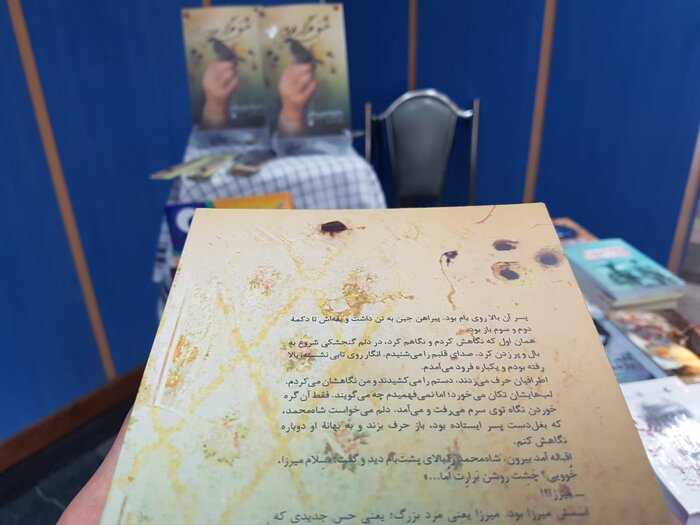 پسر آن بالا روی بام بود. پیراهن جین به تن داشت و یقه‌اش تا دکمهٔ
دوم و سوم باز بود.
همان اول که نگاهش کردم و نگاهم کرد، در دلم گنجشکی شروع به
بال و پر زدن کرد. صدای قلبم را می‌شنیدم. انگار روی تابی نشسته، بالا
رفته بودم و یکباره فرود می‌آمدم.
اطرافیان حرف می‌زدند. دستم را می‌کشیدند و من نگاهشان می‌کردم.
لب‌هایشان تکان می‌خورد؛ اما نمی‌فهمیدم چه می‌گویند. فقط آن گره
خوردن نگاه توی سرم می‌رفت و می‌آمد. دلم می‌خواست شاه‌محمد،
که بغل‌دست پسر ایستاده بود، باز حرف بزند و به بهانهٔ او دوباره
نگاهش کنم.
اقباله آمد بیرون. شاه‌محمد را بالای پشت‌بام دید و گفت: «سلام میرزا.
خووبی؟ چشت روشن برارت آما...»
ـ میرزا!!!
اسمش میرزا بود. میرزا یعنی مرد بزرگ؛ یعنی حس جدیدی که